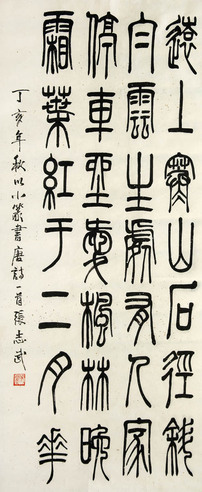 遠上寒山石徑斜
白雲生處有人家
停車坐愛楓林晚
霜葉紅于二月華
丁亥年秋以小篆書唐詩一首張志武